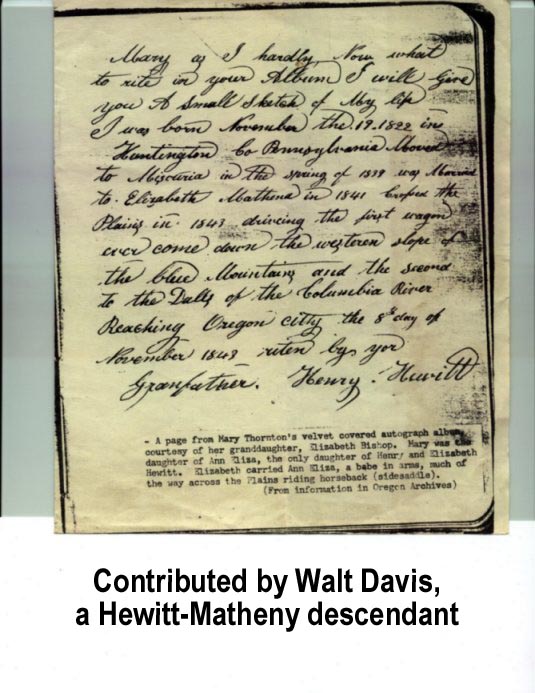 Mary as I hardly Now what
to rite in your Album I will Give
you A small Sketch of My life
I was born November the 19. 1822 in
Huntington Co Pennsylvania Moved
to Missuria in the spring of 1839 was Married
to Elizabeth Mathena in 1841 Crosed the
Plains in 1843 driveing the first wagon
ever come down the western slope of
the blue Mountains and the second
to the Dalls of the Columbia River
Reaching Oregon city the 8th day of
November 1843 riten by yor
Granfather. Henry. Hewitt
- A page from Mary Thornton's velvet covered autograph album,
courtesy of her granddaughter, Elizabeth Bishop. Mary was the
daughter of Ann Eliza, the only daughter of Henry and Elizabeth
Hewitt. Elizabeth carried Ann Eliza, a babe in arms, much of
the way across the Plains riding horseback (sidesaddle).
(From information in Oregon Archives)
Contributed by Walt Davis,
a Hewitt-Matheny descendant